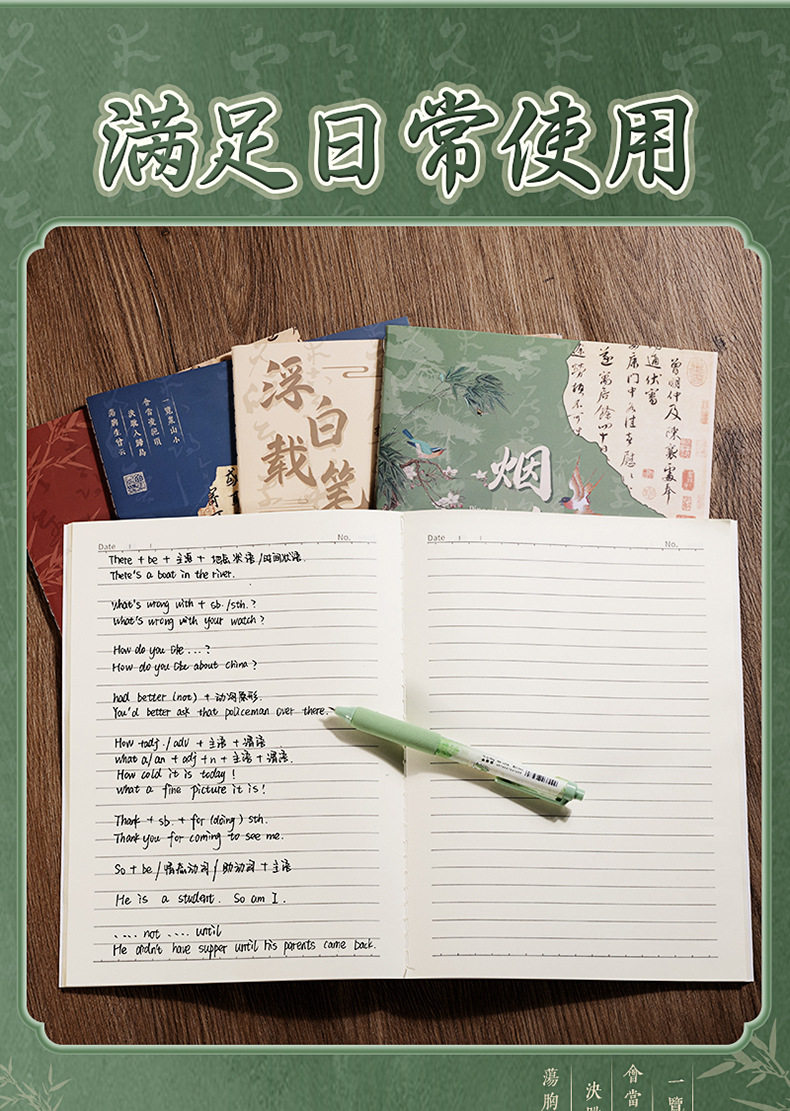 满足日常使用
一覽衆山小
會當凌絕頂
決眥入歸鳥
蕩胸生曾云
浮白
载笔
烟
曾明仲及陳襄處奉
Date
No.
Date
No.
There + be + 主语 + 地点状语/时间状语.
There's a boat in the river.
What's wrong with + sb./sth.?
What's wrong with your watch?
How do you like ...?
How do you like about china?
had better (not) + 动词原形.
You'd better ask that policeman over there.
How +adj./adv + 主语 + 谓语
what a/an + adj +n + 主语 + 谓语.
How cold it is today!
what a fine picture it is!
Thank + sb. + for (doing) sth.
Thank you for coming to see me.
So + be / 情态动词 / 助动词 + 主语
He is a student. So am I.
.... not .... until
He didn't have supper until his parents came back.
一覽
會當
決
蕩胸